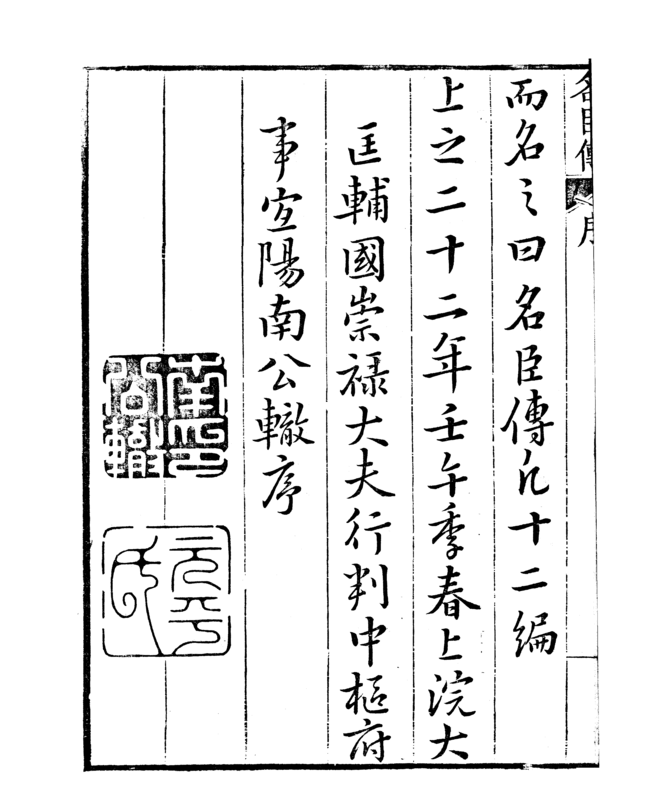 名臣傳 序
而名之曰名臣傳凡十二編
上之二十二年壬午季春上浣大
匡輔國崇祿大夫行判中樞府
事宜陽南公轍序
元平
氏